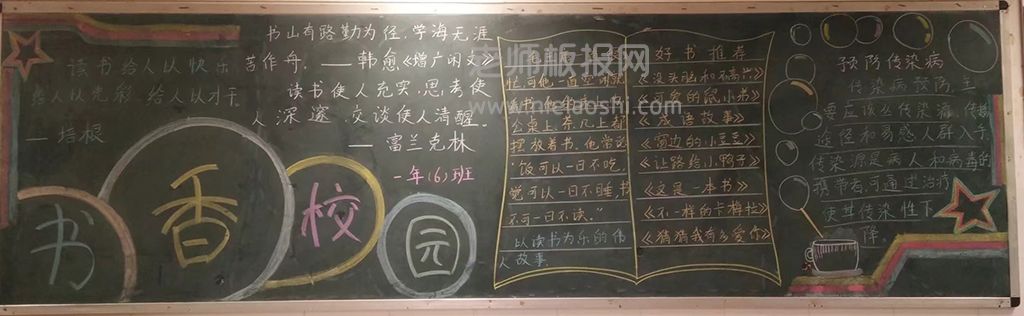 读书给人以快乐
给人以光彩,给人以才干
——培根
书山有路勤为径,学海无涯
苦作舟。——韩愈《增广闲文》
读书使人充实,思考使
人深邃,交谈使人清醒。
——富兰克林
一年(6)班
书香校园
摆放着书。他常说
"饭可以一日不吃,
觉可以一日不睡,书
不可一日不读。"
以读书为乐的伟
人故事
好书推荐
《没头脑和不高兴》
《可爱的鼠小弟》
《成语故事》
《窗边的小豆豆》
《让路给小鸭子》
《这是一本书》
《不一样的卡梅拉》
《猜猜我有多爱你》
预防传染病
传染病预防,主
要应该从传染源,传播
途径和易感人群入手
传染源是病人和病毒的
携带者,可通过治疗
使其传染性下
降。
老师板报网
www.nelaoshi.com